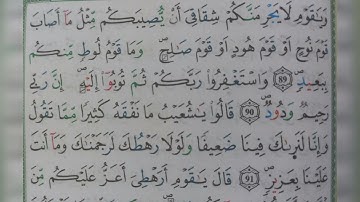 وَيَٰقَوْمِ لَا يَجْرِمَنَّكُمْ شِقَاقِىٓ أَن يُصِيبَكُم مِّثْلُ مَآ أَصَابَ
قَوْمَ نُوحٍ أَوْ قَوْمَ هُودٍ أَوْ قَوْمَ صَٰلِحٍ ۚ وَمَا قَوْمُ لُوطٍ مِّنكُم
بِبَعِيدٍ ﴿٨٩﴾ وَٱسْتَغْفِرُوا۟ رَبَّكُمْ ثُمَّ تُوبُوٓا۟ إِلَيْهِ ۚ إِنَّ رَبِّى
رَحِيمٌ وَدُودٌ ﴿٩٠﴾ قَالُوا۟ يَٰشُعَيْبُ مَا نَفْقَهُ كَثِيرًا مِّمَّا تَقُولُ
وَإِنَّا لَنَرَىٰكَ فِينَا ضَعِيفًا ۖ وَلَوْلَا رَهْطُكَ لَرَجَمْنَٰكَ ۖ وَمَآ أَنتَ
عَلَيْنَا بِعَزِيزٍ ﴿٩١﴾ قَالَ يَٰقَوْمِ أَرَهْطِىٓ أَعَزُّ عَلَيْكُم مِّنَ